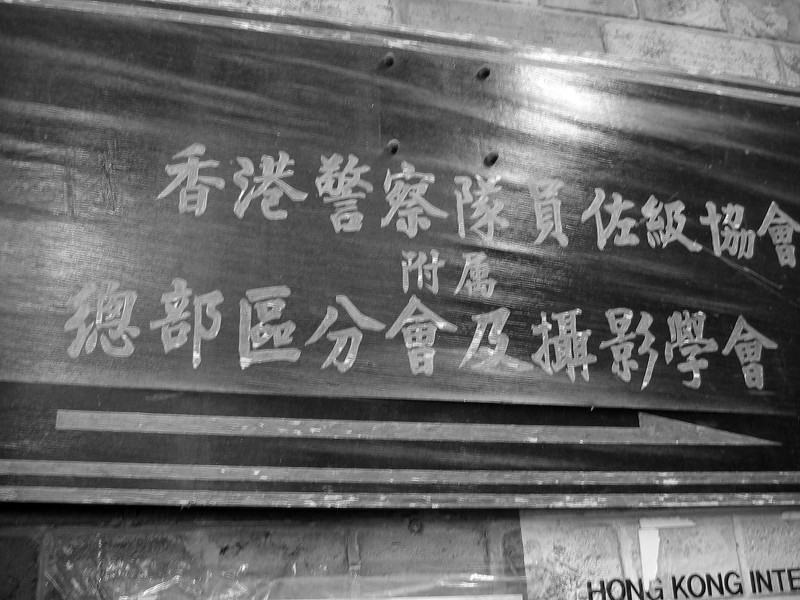 香港警察隊員佐級協會
附属
總部區分會及攝影學會
HONG KONG INTE